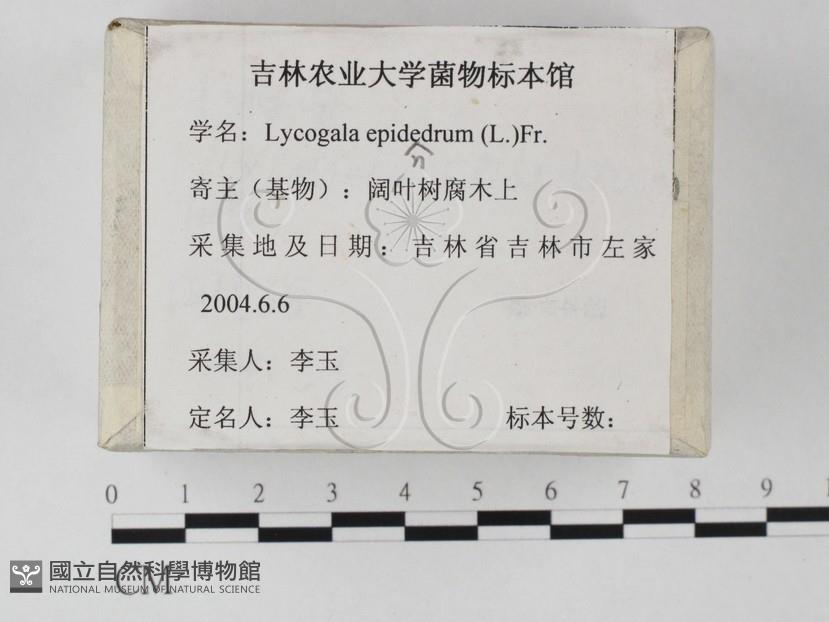 吉林农业大学菌物标本馆
学名：Lycogala epidedrum (L.)Fr.
n
寄主（基物）：阔叶树腐木上
采集地及日期：吉林省吉林市左家
2004.6.6
采集人：李玉
定名人：李玉 标本号数：
0 1 2 3 4 5 6 7 8 9
CM
國立自然科學博物館
NATIONAL MUSEUM OF NATURAL SCIENCE